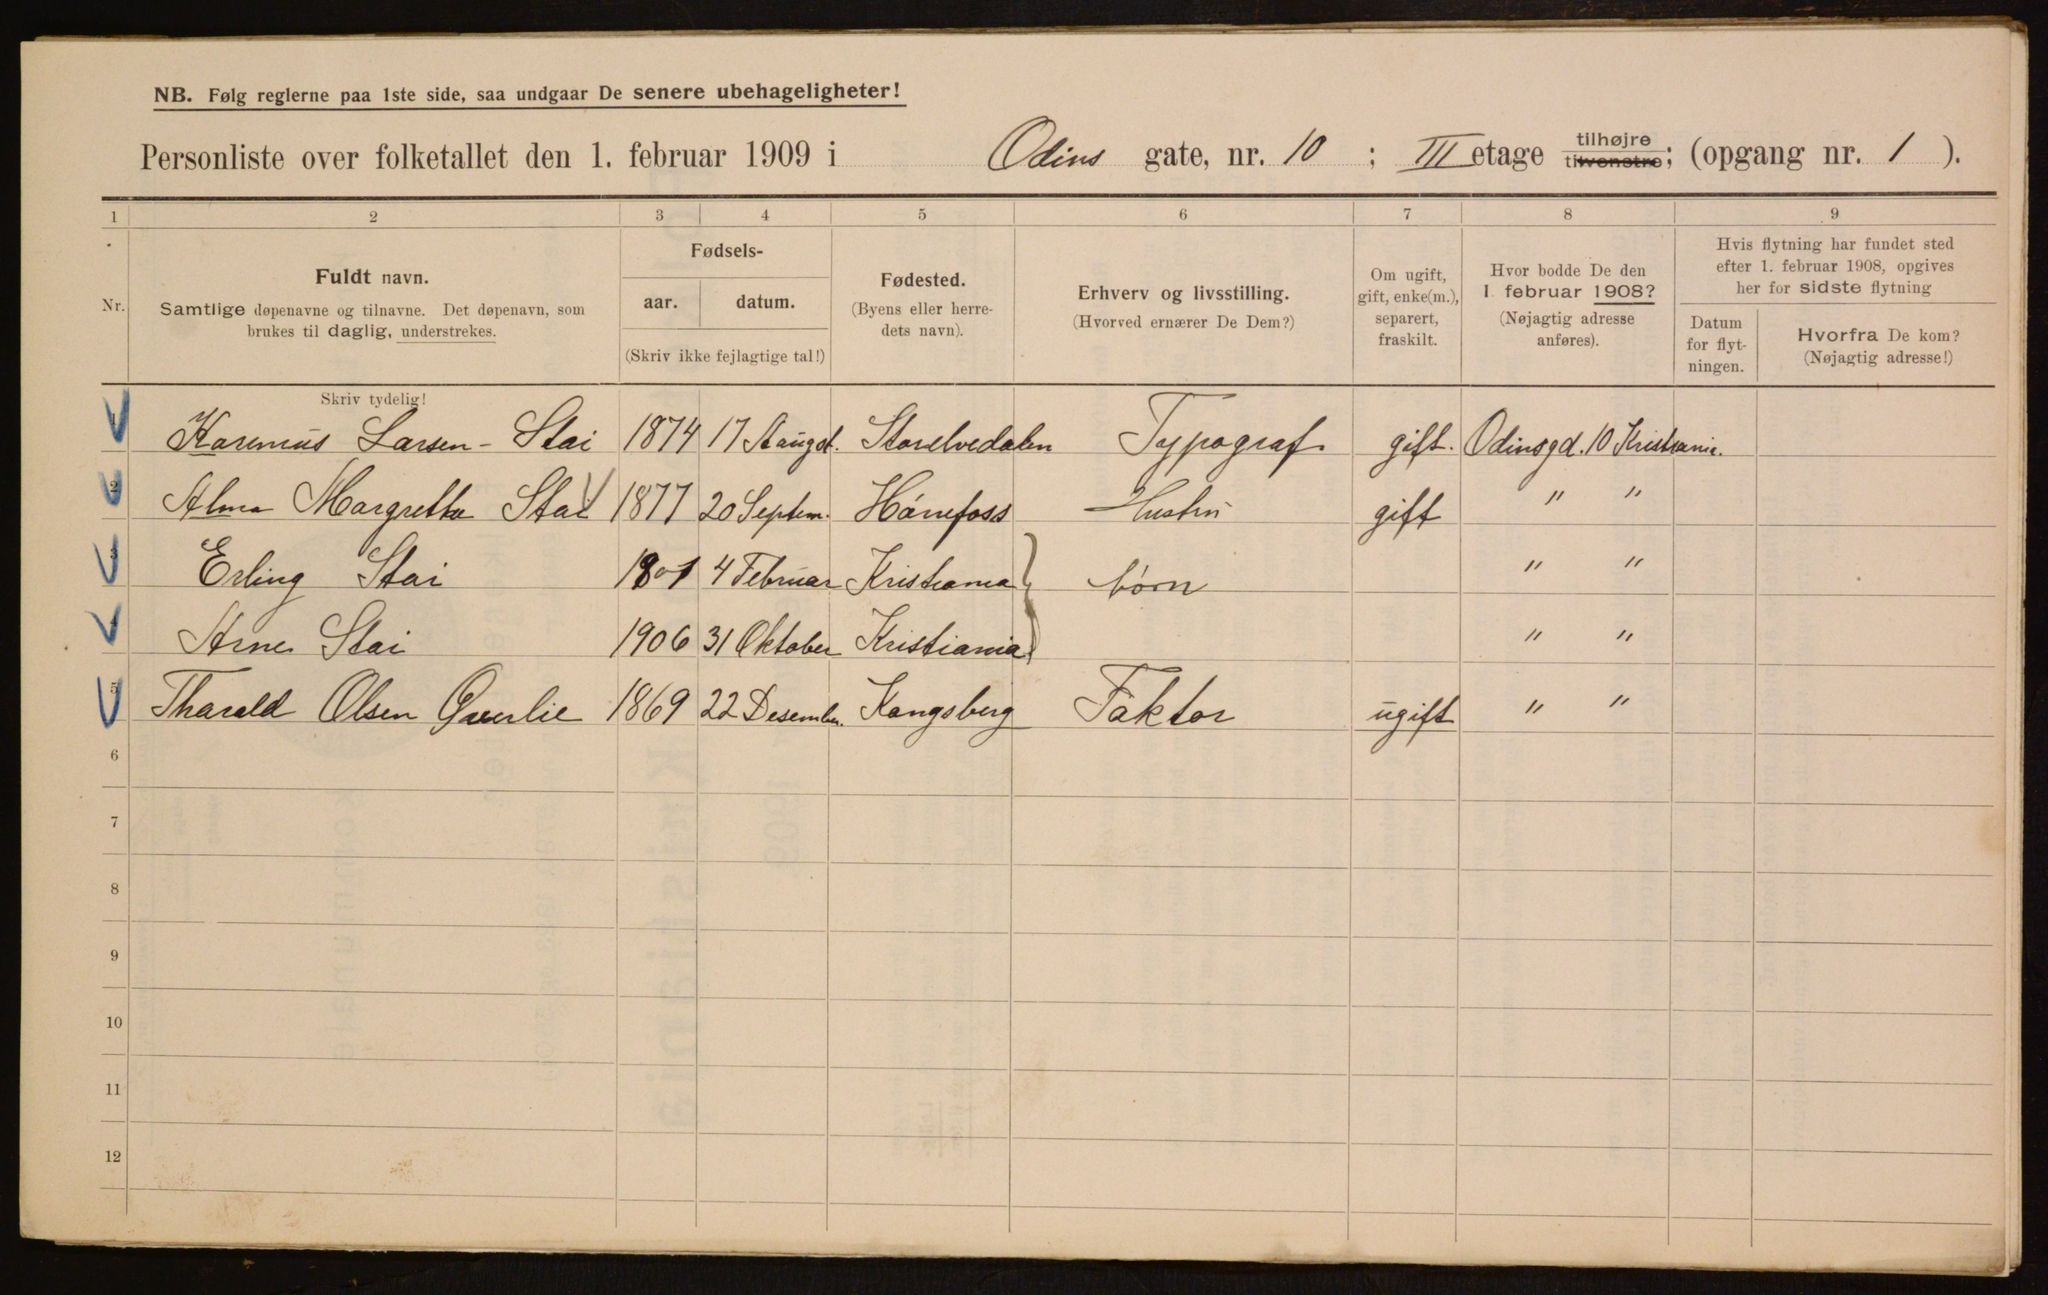 NB. Følg reglerne paa 1ste side, saa undgaar De senere ubehageligheter!
Personliste over folketallet den 1. februar 1909 i Odins gate, nr. 10 ; III etage tilhøjre tilvenstre; (opgang nr. 1 ).
1 2 3 4 5 6 7 8 9
Nr.
Fuldt navn.
Samtlige døpenavne og tilnavne. Det døpenavn, som
brukes til daglig, understrekes.
Fødsels-
aar. datum.
(Skriv ikke fejlagtige tal!)
Fødested.
(Byens eller herre-
dets navn).
Erhverv og livsstilling.
(Hvorved ernærer De Dem?)
Om ugift,
gift, enke(m.),
separert,
fraskilt.
Hvor bodde De den
1. februar 1908?
(Nøjagtig adresse
anføres).
Hvis flytning har fundet sted
efter 1. februar 1908, opgives
her for sidste flytning
Datum
for flyt-
ningen.
Hvorfra De kom?
(Nøjagtig adresse!)
Skriv tydelig!
1 Larsen - Stai 1874 17 Storelvedalen Typograf gift. Odinsgd. 10 Kristiania.
2 Alma Margrethe Stai 1877 20 Septem. Hønefoss Hustru gift " "
3 Erling Stai 4 Februar Kristiania børn " "
4 Arne Stai 1906 31 Oktober Kristiania " "
5 Tharald Olsen 1869 22 Desember. Kongsberg Faktor ugift " "
6
7
8
9
10
11
12